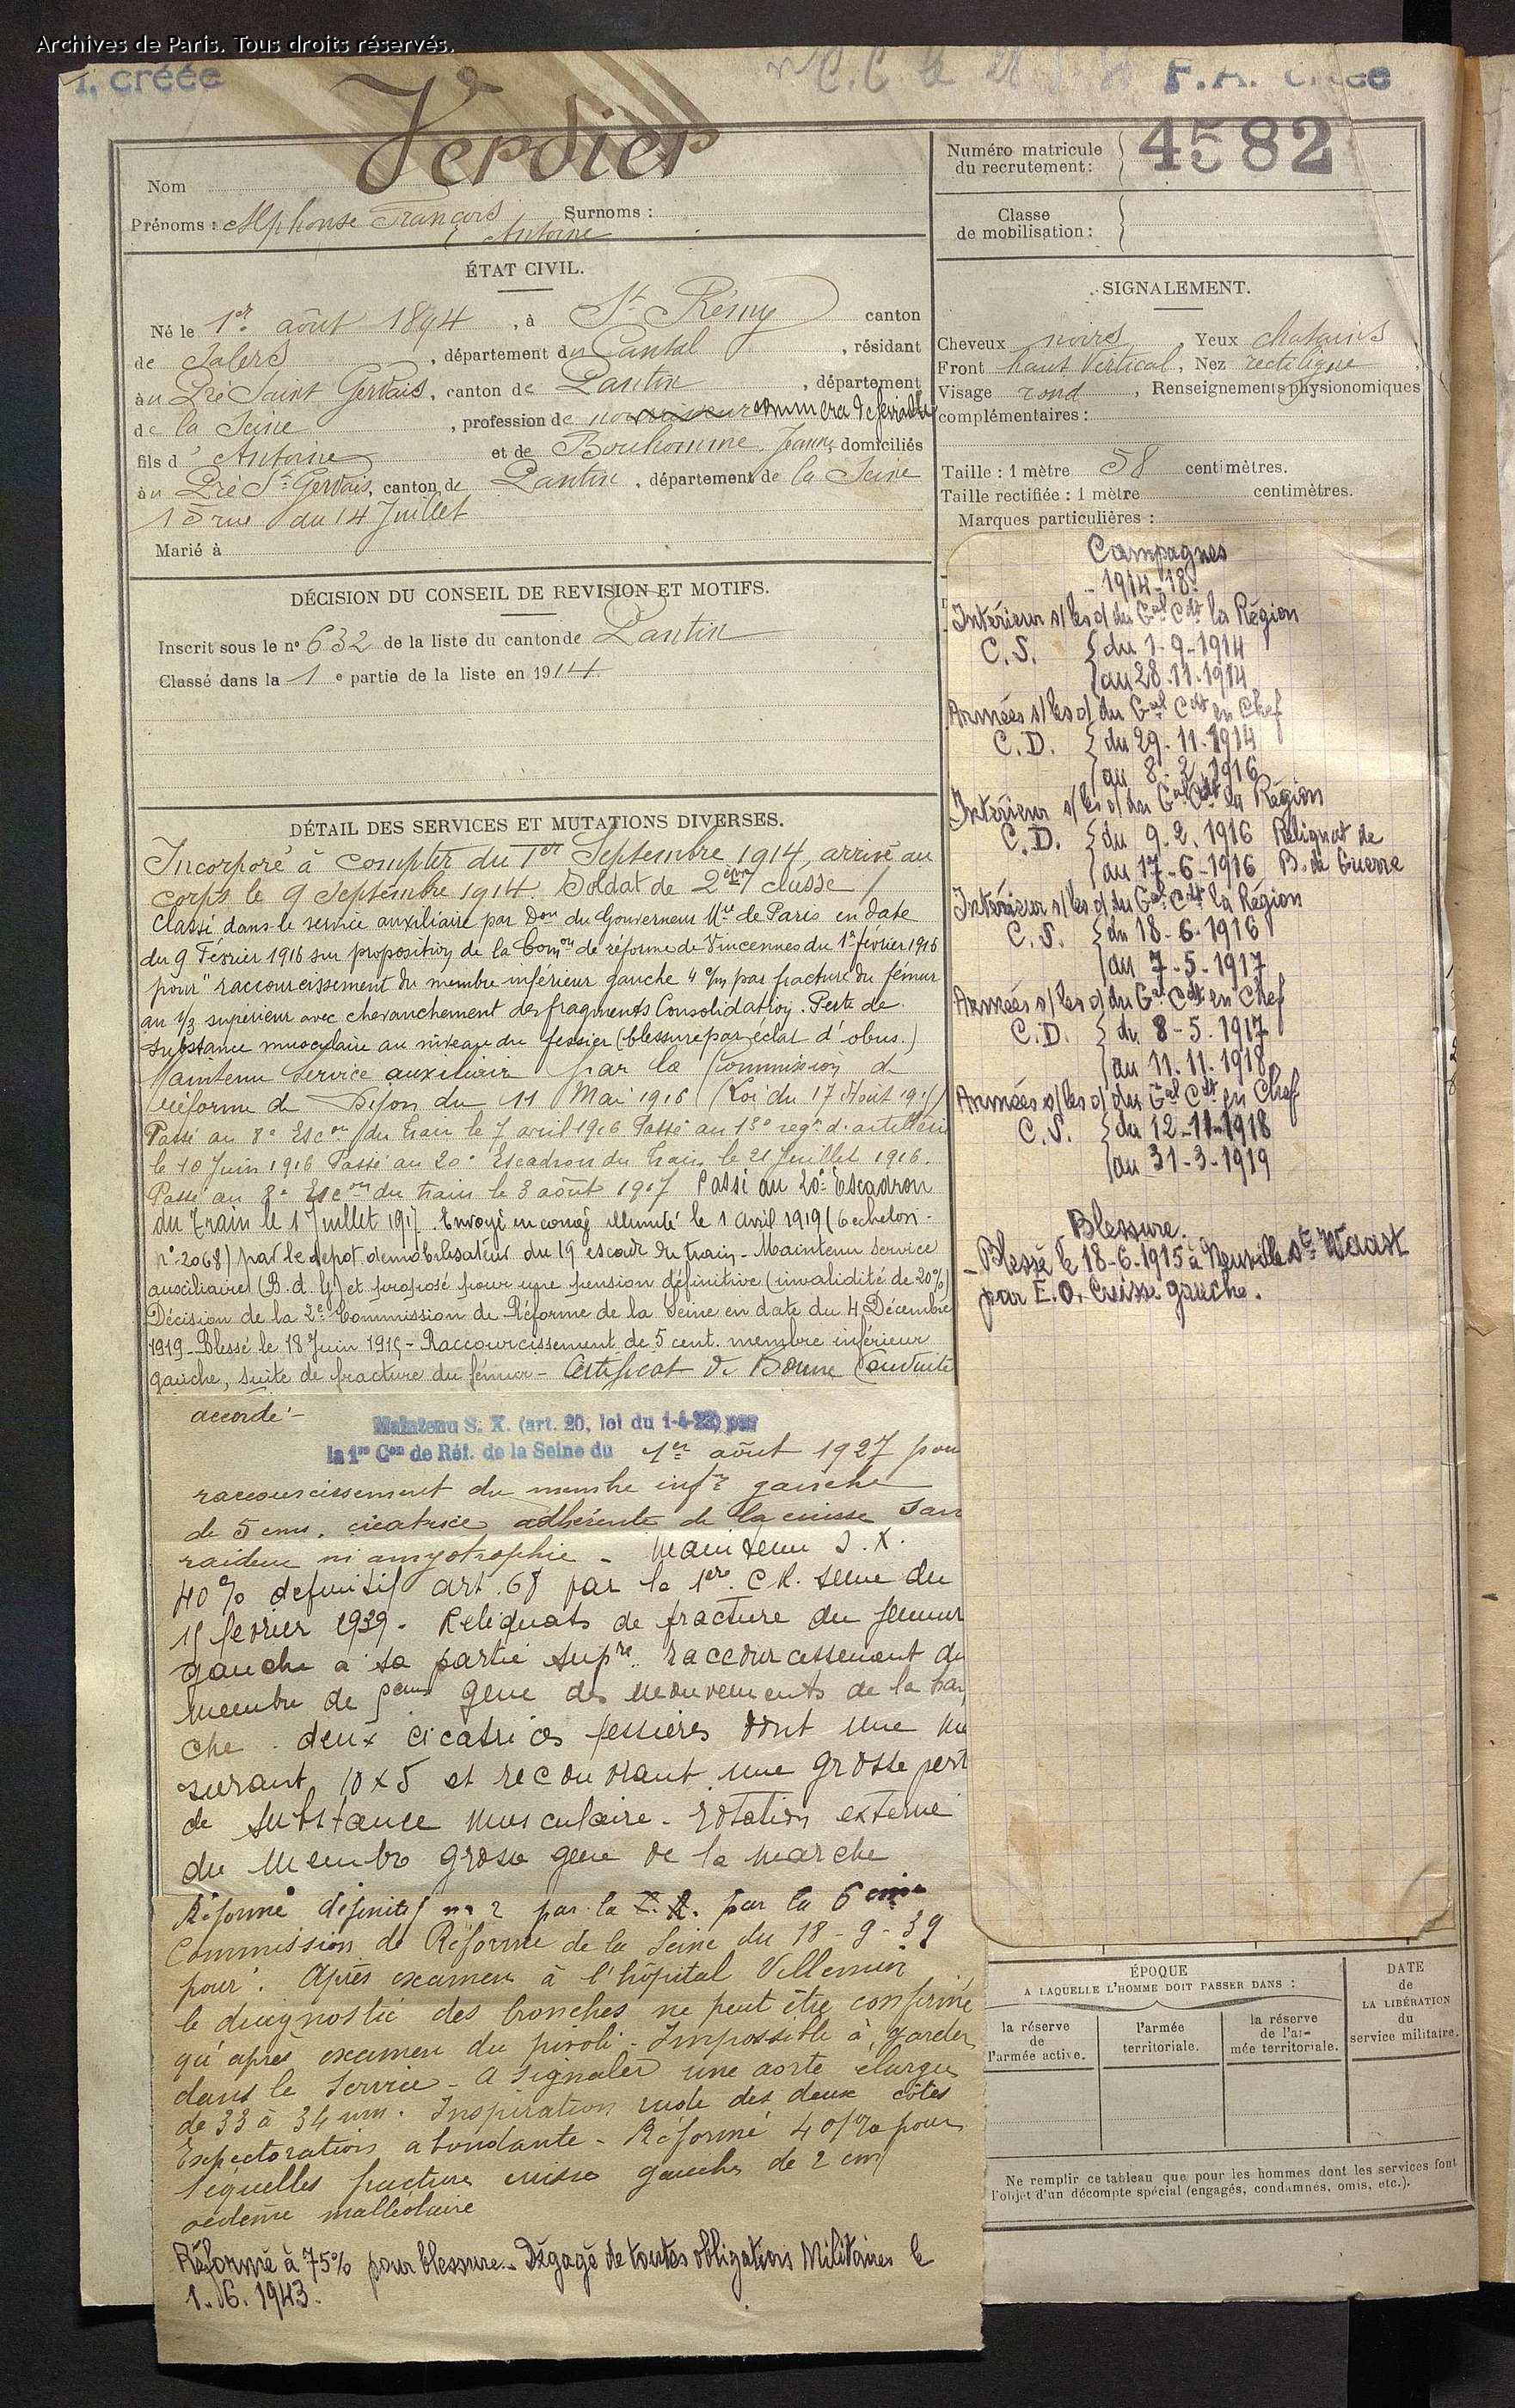 Archives de Paris. Tous droits réservés.
I. créée
F.A. créée
Nom Verdier
Prénoms : Alphonse François Surnoms :
Antoine
Numéro matricule
du recrutement : 4582
Classe
de mobilisation :
ÉTAT CIVIL.
Né le 1er août 1894, à St Rémy canton
de Salers, département du Cantal, résidant
au Pré Saint Gervais, canton de Pantin, département
de la Seine, profession de nourrisseur commerce de ferraille
fils d' Antoine et de Bonhomme Jeanne, domiciliés
au Pré St Gervais, canton de Pantin, département de la Seine
15 rue du 14 Juillet
Marié à
SIGNALEMENT.
Cheveux noirs, Yeux chatains
Front haut Vertical, Nez rectiligne,
Visage rond, Renseignements physionomiques
complémentaires :
Taille : 1 mètre 58 centimètres.
Taille rectifiée : 1 mètre centimètres.
Marques particulières :
DÉCISION DU CONSEIL DE REVISION ET MOTIFS.
Inscrit sous le n° 632 de la liste du canton de Pantin
Classé dans la 1e partie de la liste en 1914.
DÉTAIL DES SERVICES ET MUTATIONS DIVERSES.
Incorporé à compter du 1er Septembre 1914, arrivé au
corps le 9 Septembre 1914. Soldat de 2ème classe
Classé dans le service auxiliaire par Don du Gouverneur Mre de Paris en date
du 9 Février 1916 sur proposition de la Comon de réforme de Vincennes du 1er février 1916
pour "raccourcissement du membre inférieur gauche 4 c/m par fracture du fémur
au 1/3 supérieur avec chevauchement des fragments Consolidation. Perte de
substance musculaire au niveau du fessier (blessure par éclat d'obus.)
Maintenu Service auxiliaire par la Commission de
réforme de Dijon du 11 Mai 1916 (Loi du 17 Août 1915)
Passé au 8e Escon du train le 7 avril 1916 Passé au 13e regt d'artillerie
le 10 Juin 1916 Passé au 20e Escadron du train le 21 Juillet 1916.
Passé au 8e Escon du train le 3 août 1917 Passé au 20e Escadron
du Train le 1 Juillet 1917. Envoyé en congé illimité le 1 Avril 1919 (6 echelon.
n° 2068) par le depot demobilisateur du 19 escadr du train - Maintenu service
auxiliaire (B.d.G) et proposé pour une pension définitive (invalidité de 20%)
Décision de la 2e Commission de Réforme de la Seine en date du 4 Décembre
1919 - Blessé le 18 Juin 1915 - Raccourcissement de 5 cent. membre inférieur
gauche, suite de fracture du fémur - Certificat de Bonne Conduite
accordé -
Maintenu S. X. (art. 20, loi du 1-4-23) par
la 1re Con de Réf. de la Seine du 1er août 1927 pour
raccourcissement du membre infr gauche
de 5 cms. cicatrice adhérente de la cuisse sans
raideur ni amyotrophie - Maintenu S.X.
40% definitif art. 68 par la 1ere C.R. Seine du
février 1939. Reliquats de fracture du femur
gauche à sa partie supre. raccourcissement du
membre de 5cms gene des mouvements de la han
che. deux cicatrices fessières dont une me
surant 10 x 5 et recouvrant une grosse perte
de substance musculaire - rotation externe
du membre grosse gene de la marche
Réformé définitif n° 2 par la C.R. par la 6eme
Commission de Réforme de la Seine du 18-9-39
pour : Après examen à l'hôpital Villemin
le diagnostic des bronches ne peut être confirmé
qu'après examen du . Impossible à garder
dans le Service - A signaler une aorte élargie
de 33 à 34 mm. Inspiration rude des deux côtés
Expectoration abondante - Réformé 40% pour
séquelles fracture cuisse gauche de 2 cm
oedème malléolaire
Réformé à 75% pour blessure - Dégagé de toutes obligations Militaires le
1.6.1943.
Campagnes
- 1914-18 -
Intérieur s/les o/ du Gal Cdt la Région
C.S. { du 1-9-1914
au 28-11-1914
Armées s/les o/ du Gal Cdt en Chef
C.D. { du 29-11-1914
au 8-2-1916
Intérieur s/les o/ du Gal Cdt la Région
C.D. { du 9.2.1916 Reliquat de
au 17-6-1916 B. de Guerre
Intérieur s/les o/ du Gal Cdt la Région
C.S. { du 18-6-1916
au 7-5-1917
Armées s/les o/ du Gal Cdt en Chef
C.D. { du 8-5-1917
au 11.11.1918
Armées s/les o/ du Gal Cdt en Chef
C.S. { du 12-11-1918
au 31-3-1919
Blessure.
- Blessé le 18-6-1915 à Neuville St Waast
par E.O. Cuisse gauche.
ÉPOQUE
A LAQUELLE L'HOMME DOIT PASSER DANS :
la réserve
de
l'armée active.
l'armée
territoriale.
la réserve
de l'ar-
mée territoriale.
DATE
de
LA LIBÉRATION
du
service militaire.
Ne remplir ce tableau que pour les hommes dont les services font
l'objet d'un décompte spécial (engagés, condamnés, omis, etc.).